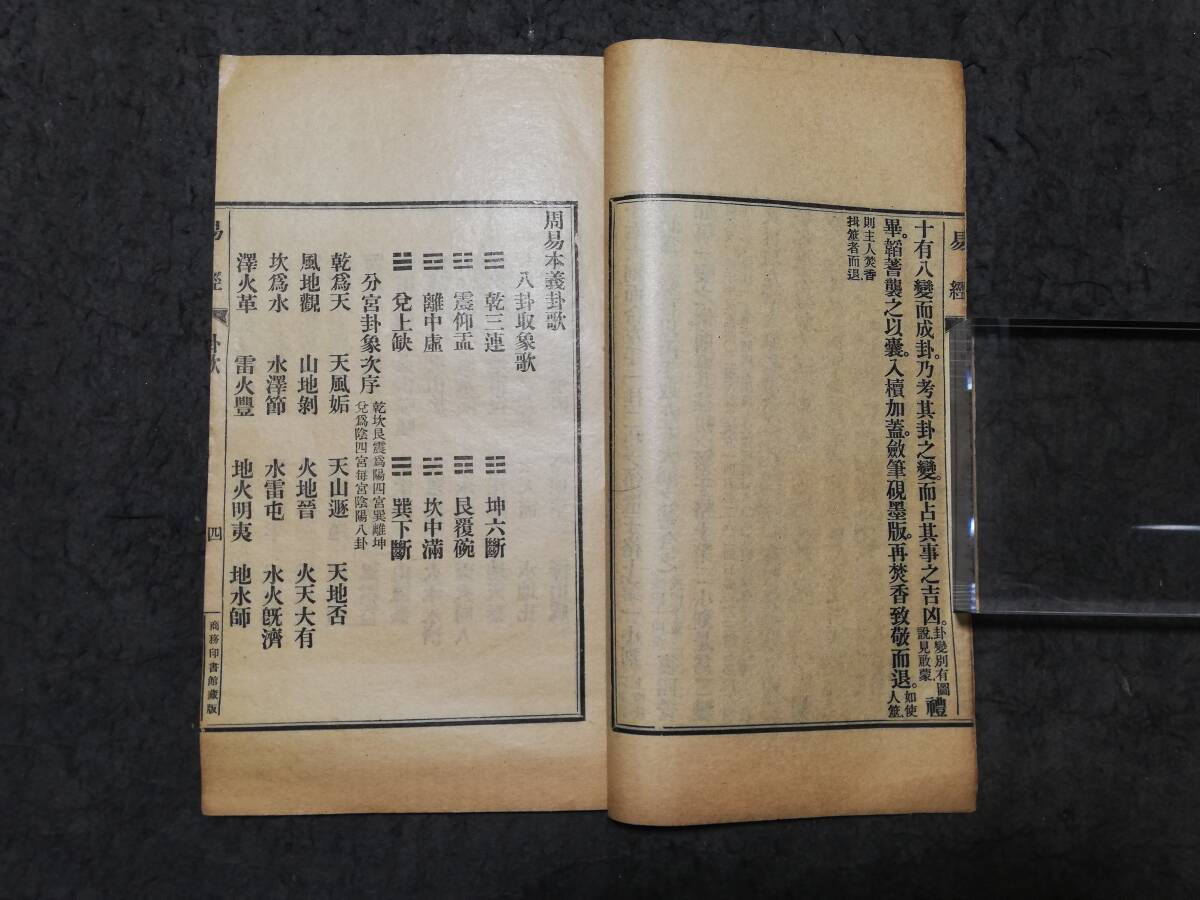 易 經
十有八變而成卦。乃考其卦之變。而占其事之吉凶。卦變別有圖說見啟蒙。禮
畢。韜蓍襲之以囊。入櫝加蓋。斂筆硯墨版。再焚香致敬而退。如使人筮。
則主人焚香揖筮者而退。
周易本義卦歌
八卦取象歌
☰ 乾三連 ☷ 坤六斷
☳ 震仰盂 ☶ 艮覆碗
☲ 離中虛 ☵ 坎中滿
☱ 兌上缺 ☴ 巽下斷
分宮卦象次序 乾坎艮震爲陽四宮巽離坤兌爲陰四宮每宮陰陽八卦
乾爲天 天風姤 天山遯 天地否
風地觀 山地剝 火地晉 火天大有
坎爲水 水澤節 水雷屯 水火旣濟
澤火革 雷火豐 地火明夷 地水師
易 經 卦歌 四 商務印書館藏版